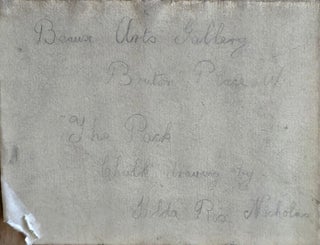 Beaux Arts Gallery
Bruton Place W
"The Park
Chalk drawing by
Hilda Rix Nicholas